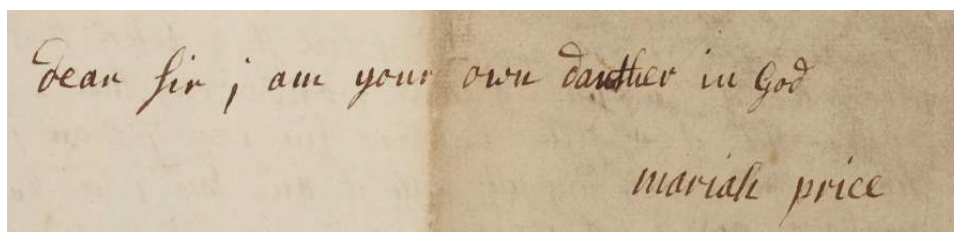 dear sir j am your own dauther in God
mariah price